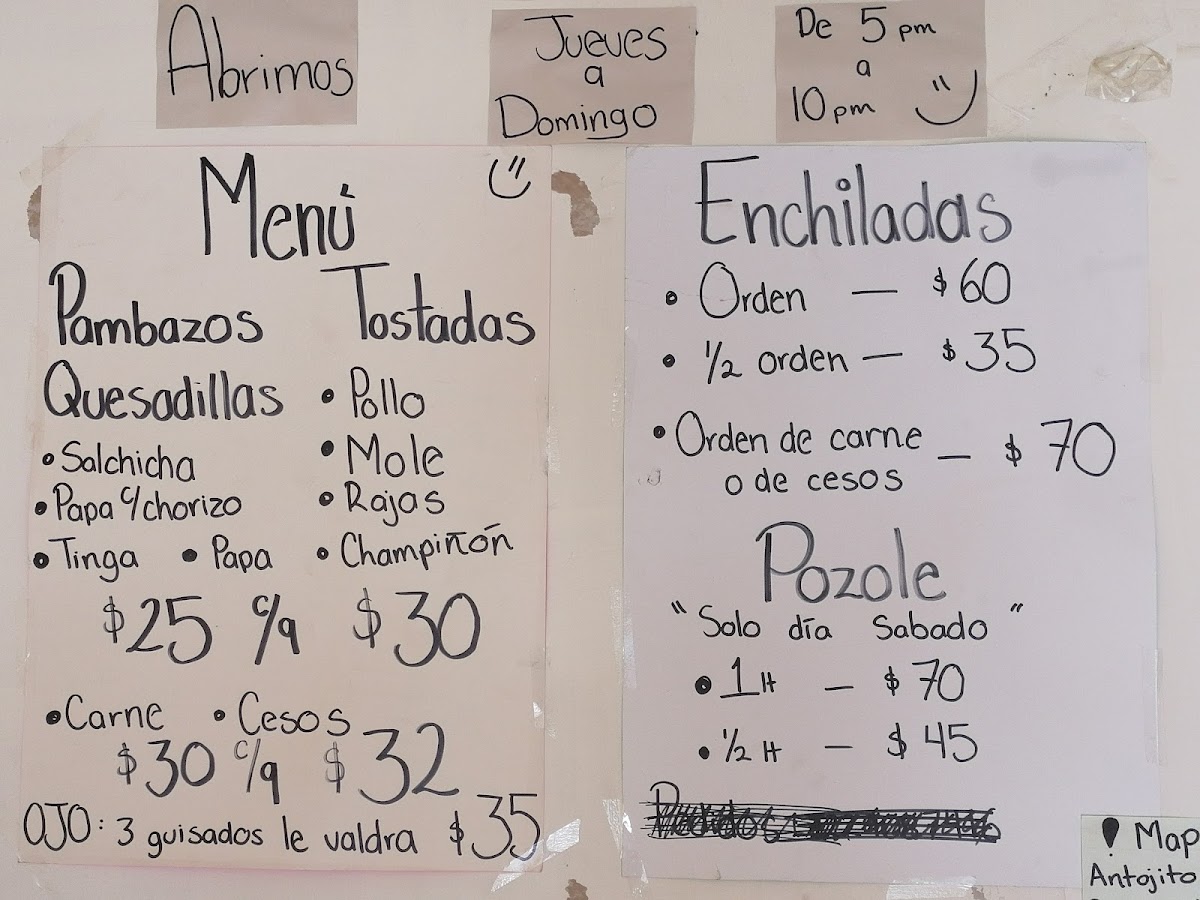 Abrimos
Jueves
a
Domingo
De 5 pm
a
10 pm
Menú
Pambazos
Quesadillas
• Salchicha
• Papa c/chorizo
• Tinga • Papa
Tostadas
• Pollo
• Mole
• Rajas
• Champiñón
$25 c/q $30
• Carne • Cesos
$30 c/q $32
OJO: 3 guisados le valdra $35
Enchiladas
• Orden — $60
• 1/2 orden — $35
• Orden de carne
o de cesos — $70
Pozole
"Solo día Sabado"
• 1 H — $70
• 1/2 H — $45
Pedidos
Map
Antojito